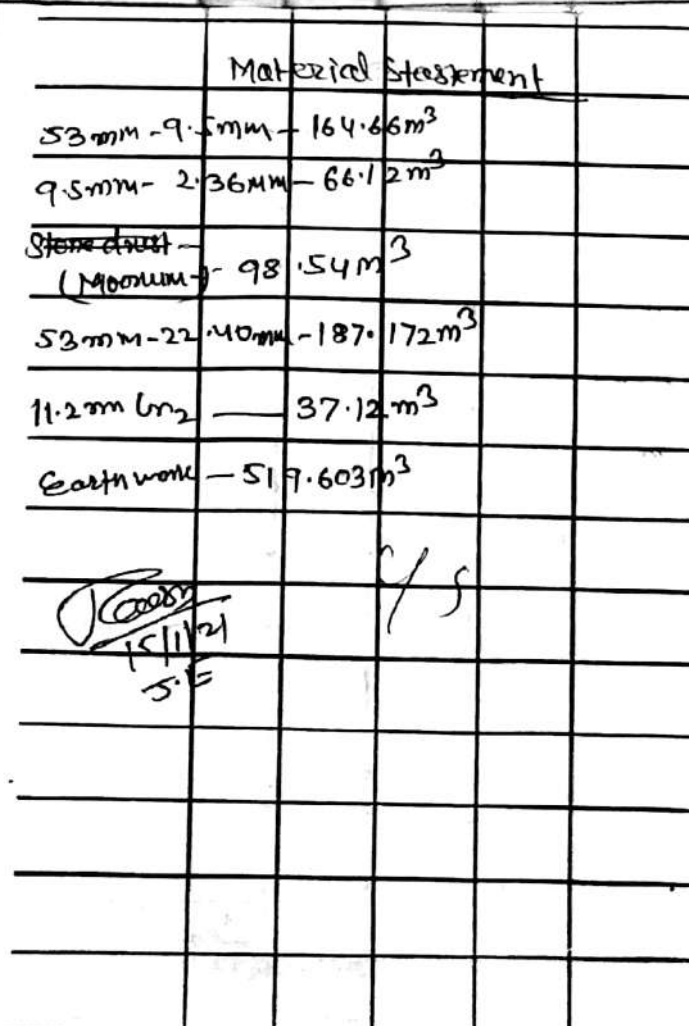 Material Stastement
53mm-9.5mm- 164.66m³
9.5mm- 2.36mm- 66.12m³
Stone dust -
(Moorum)- 98.54m³
53mm-22.40mm-187.172m³
11.2mm 37.12m³
Earthwork - 519.603m³
15/1/21
J.E